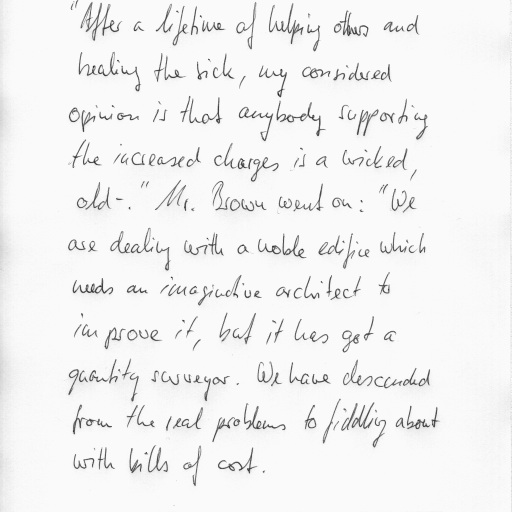 "After a lifetime of helping others and
healing the sick, my considered
opinion is that anybody supporting
the increased charges is a wicked,
old-." Mr. Brown went on: "We
are dealing with a noble edifice which
needs an imaginative architect to
improve it, but it has got a
quantity surveyor. We have descended
from the real problems to fiddling about
with bills of cost.